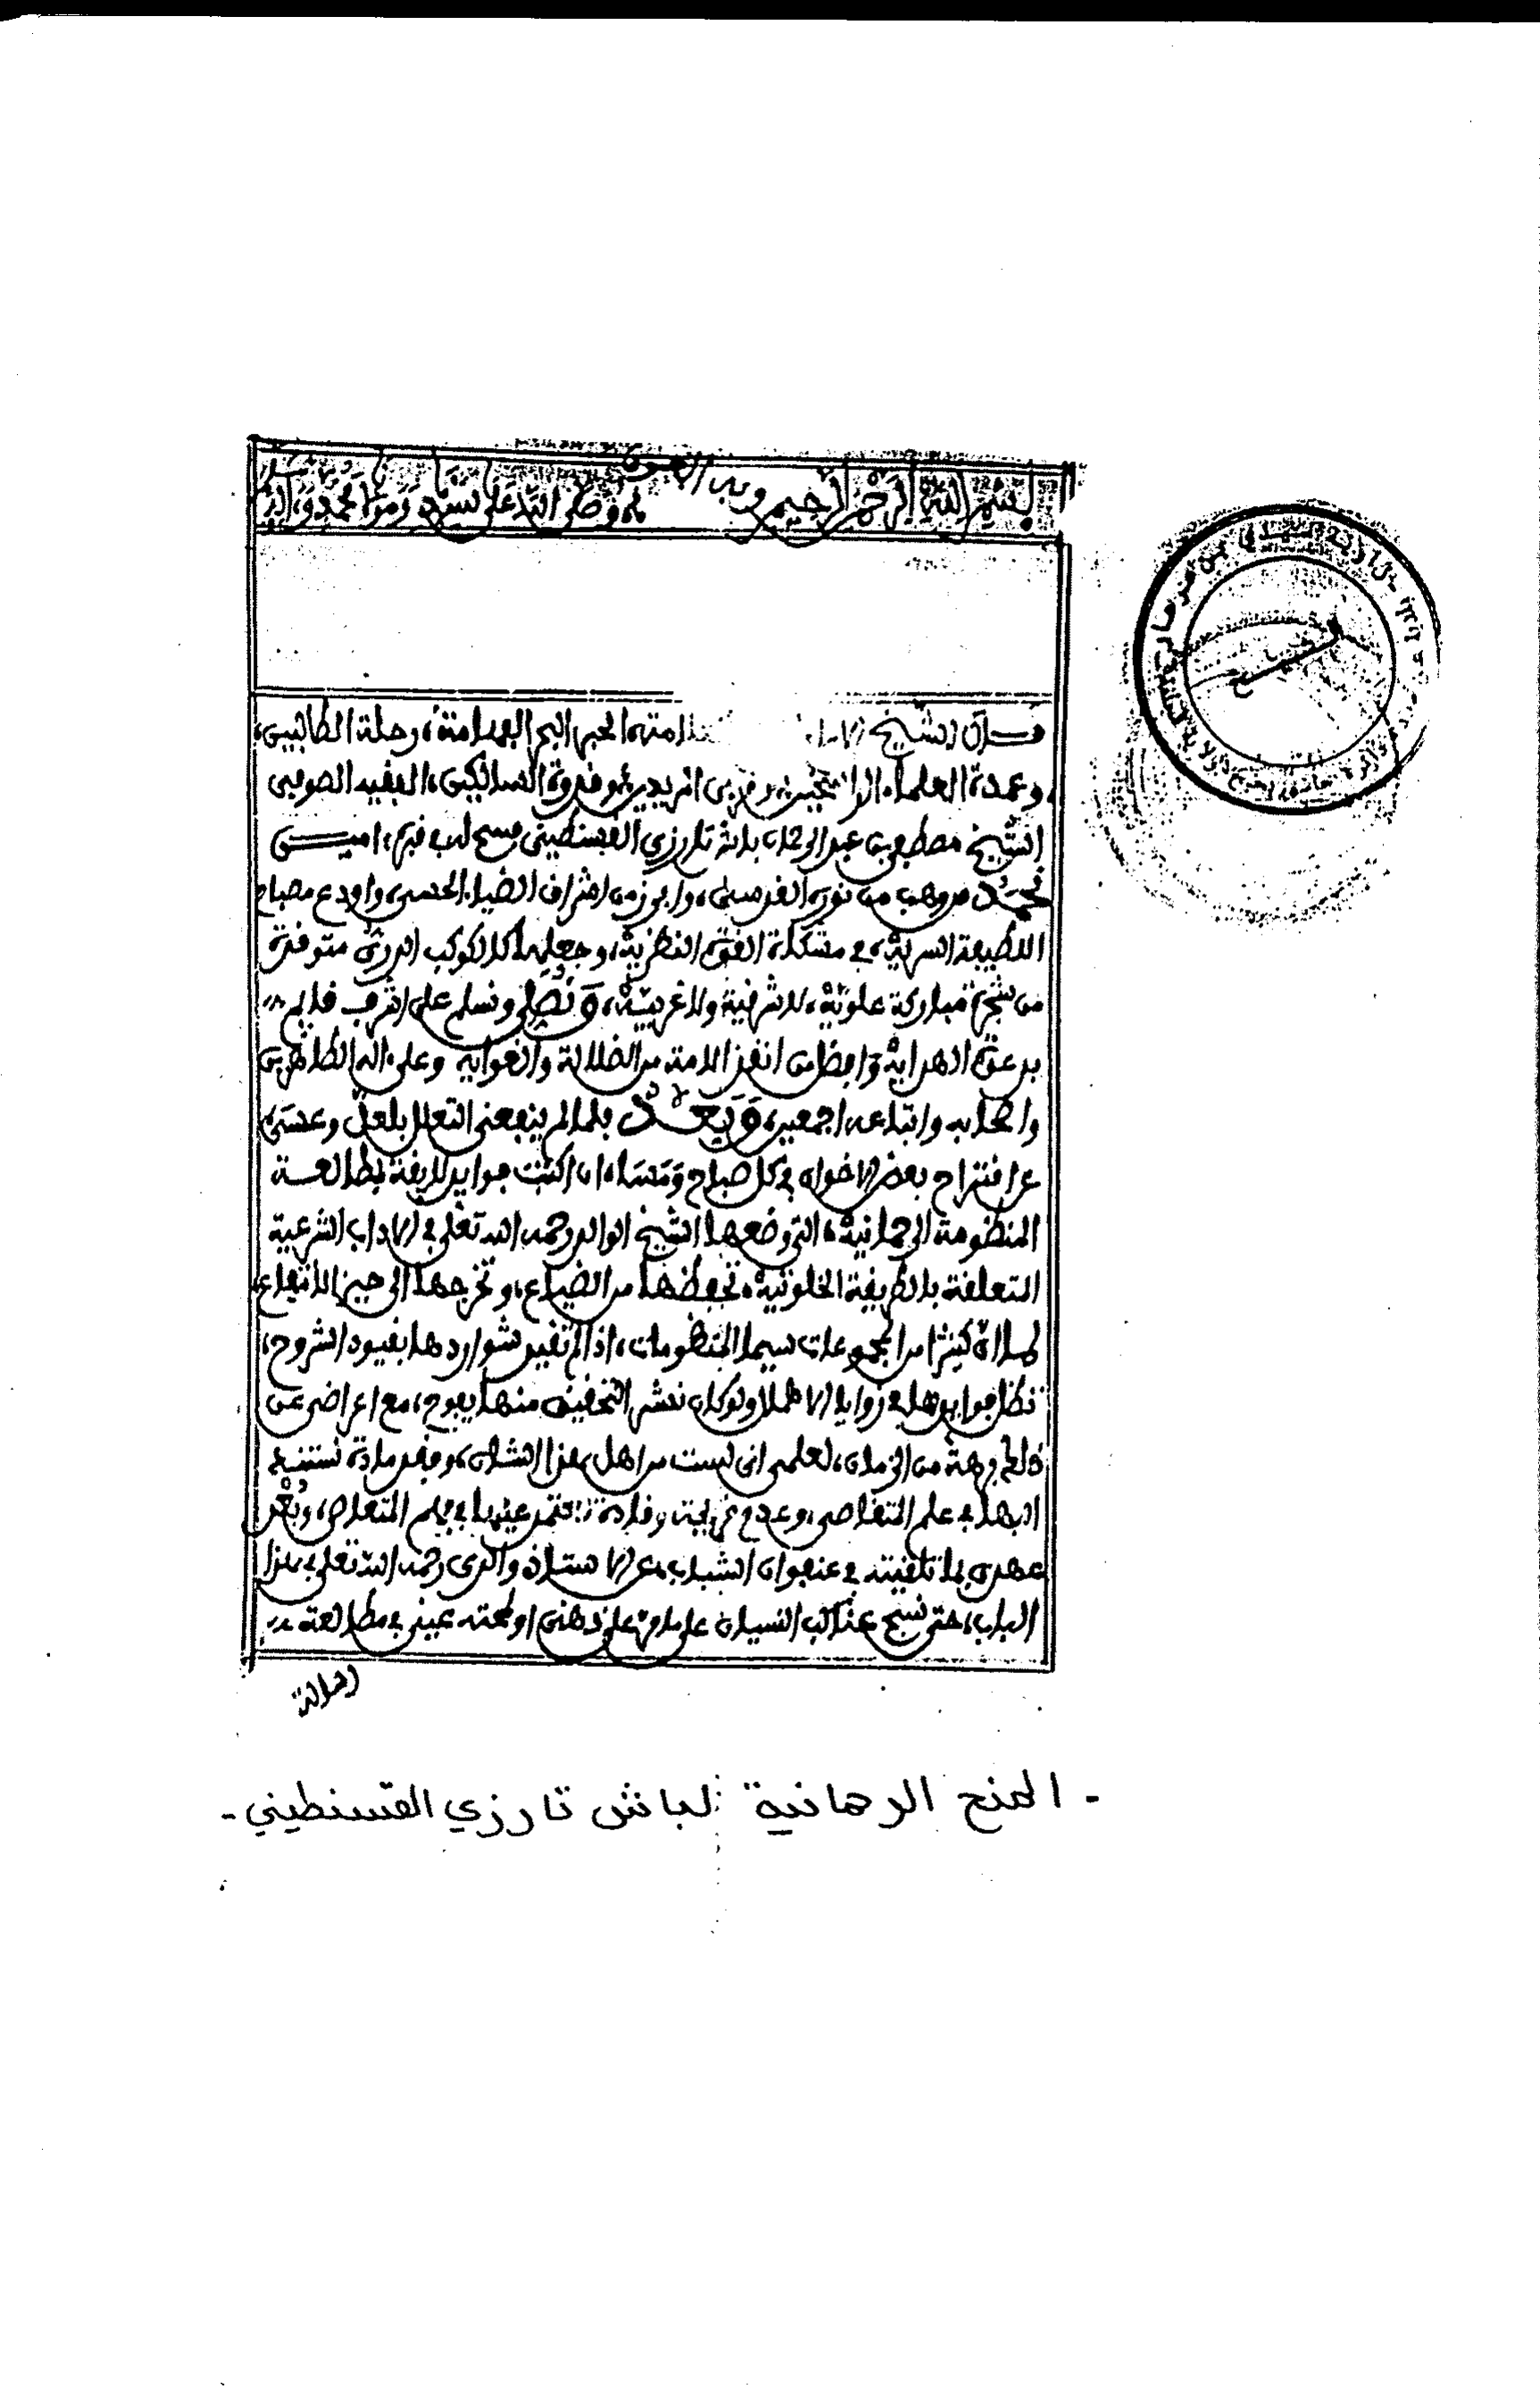 بسم الله الرحمن الرحيم وبه العون
وصلى الله على سيدنا ومولانا محمد وءاله
قال الشيخ الحبر البحر الفهامة، رحلة الطالبين،
وعمدة العلماء الراسخين، ومربى المريدين، وقدوة السالكين، الفقيه الصوفي
الشيخ مصطفى بن عبد الرحمان باش تارزي القسنطيني فسح له في قبره، امين
نحمد من وهب من نوره القدسى، وابرز من اشراف الضياء الحسى، واودع مصباح
اللطيفة السرية، في مشكاة القوى النظرية، وجعلها كالكوكب الدري متوقدة
من شجرة مباركة علوية، لا شرقية ولا غربية، ونصلي ونسلم على اشرف قايم
بدعوة الهداية وافضل من انقذ الامة من الضلالة والغواية وعلى اله الطاهرين
واصحابه واتباعه اجمعين، وبعد فلما لم ينفعنى التعلل بلعل وعسى
عن اقتراح بعض الاخوان في كل صباح ومساء، ان اكتب فوايد لايقة بمطالعة
المنظومة الرحمانية، التى وضعها الشيخ الوالد رحمه الله تعلى في الاداب الشرعية
المتعلقة بالطريقة الخلوتية، تحفظها من الضياع، وتخرجها الى حيز الانتفاع،
لما ان كثيرا من المجموعات سيما المنظومات، اذا لم تقيد شواردها بقيود الشروح،
تظل فوايدها في زوايا الاهمال ولو كان نشر التحقيق منها يفوح، مع اعراضى عن
ذلك برهة من الزمان، لعلمى انى لست من اهل هذا الشان، وفقد مادة نستند
اليها في علم التقاصى، وعدم قريحة وقادة نعتمد عليها في فهم المتعاص، وبعد
عهدى بما تلقيته في عنفوان الشباب، عن الاستاذ والدى رحمه الله تعلى في هذا
الباب، حتى نسج عناكب النسيان على ما مر على ذهنى او لمحته عينى في مطالعة
رسالة
- المنح الربانية لباش تارزي القسنطيني -